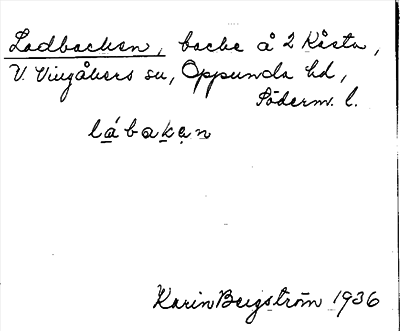 Ladbacken, backe å 2 Kåsta,
V. Vingåkers sn, Oppunda hd,
Söderm. l.
lábakẹn
Karin Bergström 1936